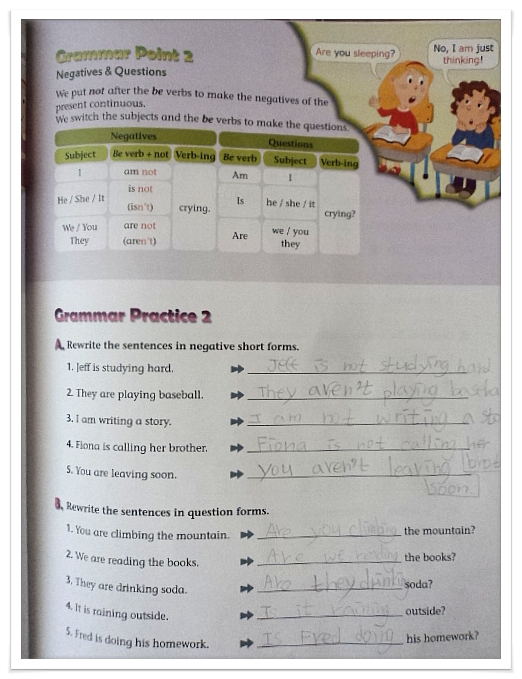 Grammar Point 2
Negatives & Questions
Are you sleeping?
No, I am just
thinking!
We put not after the be verbs to make the negatives of the
present continuous.
We switch the subjects and the be verbs to make the questions.
Negatives
Questions
Subject Be verb + not Verb-ing Be verb Subject Verb-ing
I am not crying. Am I crying?
He / She / It is not
(isn't) Is he / she / it
We / You
They are not
(aren't) Are we / you
they
Grammar Practice 2
A. Rewrite the sentences in negative short forms.
1. Jeff is studying hard. Jeff is not studying hard
2. They are playing baseball. They aren't playing baseba
3. I am writing a story. I am not writing a sto
4. Fiona is calling her brother. Fiona is not calling her
brot
5. You are leaving soon. you aren't leaving
soon
B. Rewrite the sentences in question forms.
1. You are climbing the mountain. Are you climbing the mountain?
2. We are reading the books. Are we reading the books?
3. They are drinking soda. Are they drinking soda?
4. It is raining outside. Is it raining outside?
5. Fred is doing his homework. Is Fred doing his homework?